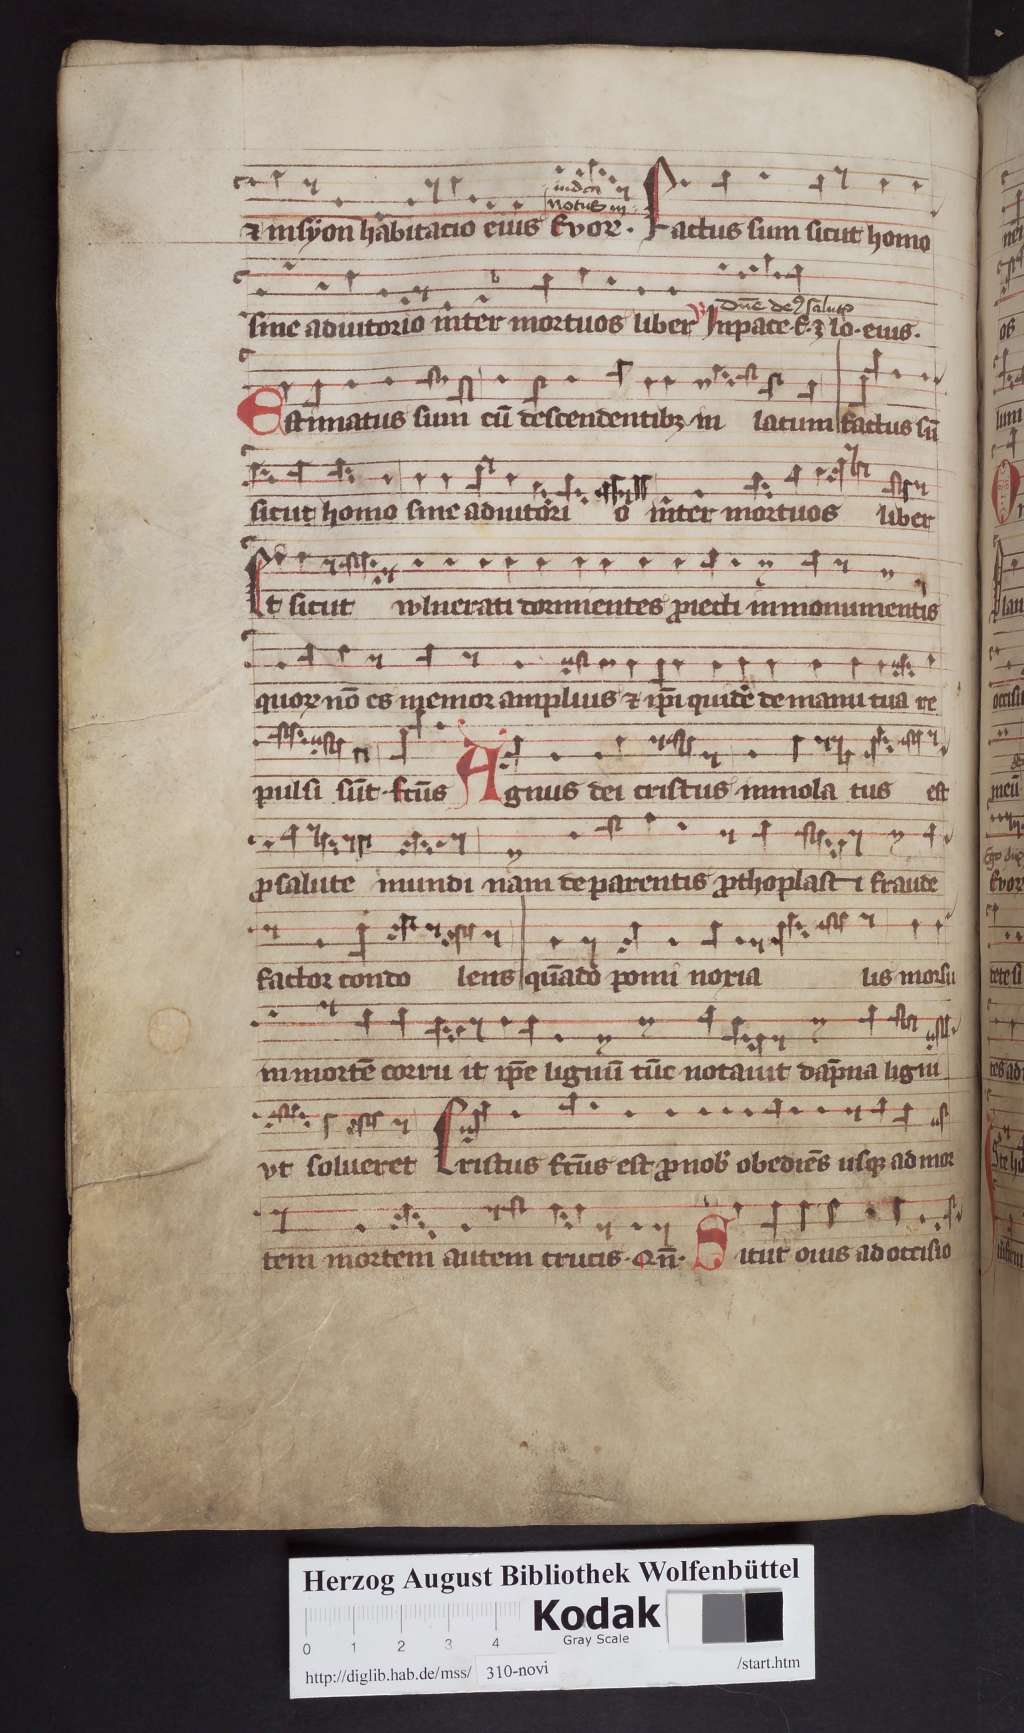 ⁊ in syon habitacio eius Evor. Factus sum sicut homo
notus in
sine adiutorio inter mortuos liber In pace f. ⁊ lo. eius.
Estimatus sum cū descendentibꝫ in lacum factus sū
sicut homo sine adiutori o int̄er mortuos liber
Et sicut wlnerati dormientes ꝓiecti in monumentis
quorꝝ nō es memor amplius ⁊ ip̄i quidē de manu tua re
pulsi sūt fcūs Agnus dei cristus immola tus est
ꝓ salute mundi nam de parentis ꝓthoplasti fraude
factor condo lens quādo pomi noxia lis morsu
in mortē corru it ip̄e lignū tūc notauit dāpna ligni
vt solueret Cristus fcūs est ꝓ nob̄ obediēs usqꝫ ad mor
tem mortem autem crucis. Qn̄. Sicut ouis ad occisio
Herzog August Bibliothek Wolfenbüttel
0 1 2 3 4
Kodak
Gray Scale
http://diglib.hab.de/mss/ 310-novi /start.htm